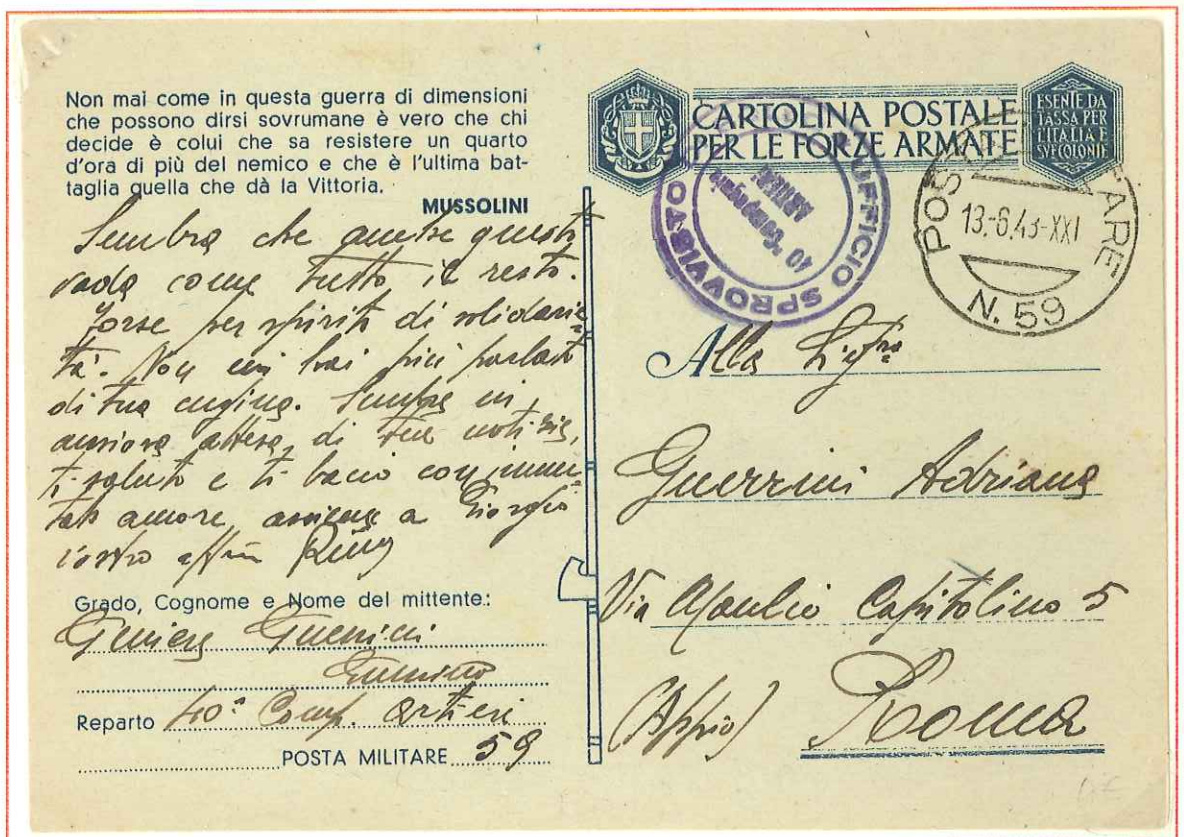 Non mai come in questa guerra di dimensioni
che possono dirsi sovrumane è vero che chi
decide è colui che sa resistere un quarto
d'ora di più del nemico e che è l'ultima bat-
taglia quella che dà la Vittoria.
MUSSOLINI
Sembra che anche questa
vada come tutto il resto.
Forse per spirito di solidarie-
tà. Non mi hai più parlato
di tua cugina. Sempre in
ansiosa attesa di tue notizie,
ti saluto e ti bacio con immu-
tato amore, assieme a Giorgio
vostro
Grado, Cognome e Nome del mittente:
Geniere Guerrini
Reparto 40ª Comp. Artieri
POSTA MILITARE 59
CARTOLINA POSTALE
PER LE FORZE ARMATE
ESENTE DA
TASSA PER
L'ITALIA E
SVE COLONIE
UFFICIO SPROVVISTO
40ª Compagnia
ARTIERI
POSTA MILITARE
13-6.43-XXI
N. 59
Alla
Guerrini Adriana
Via Manlio Capitolino 5
(Appio) Roma